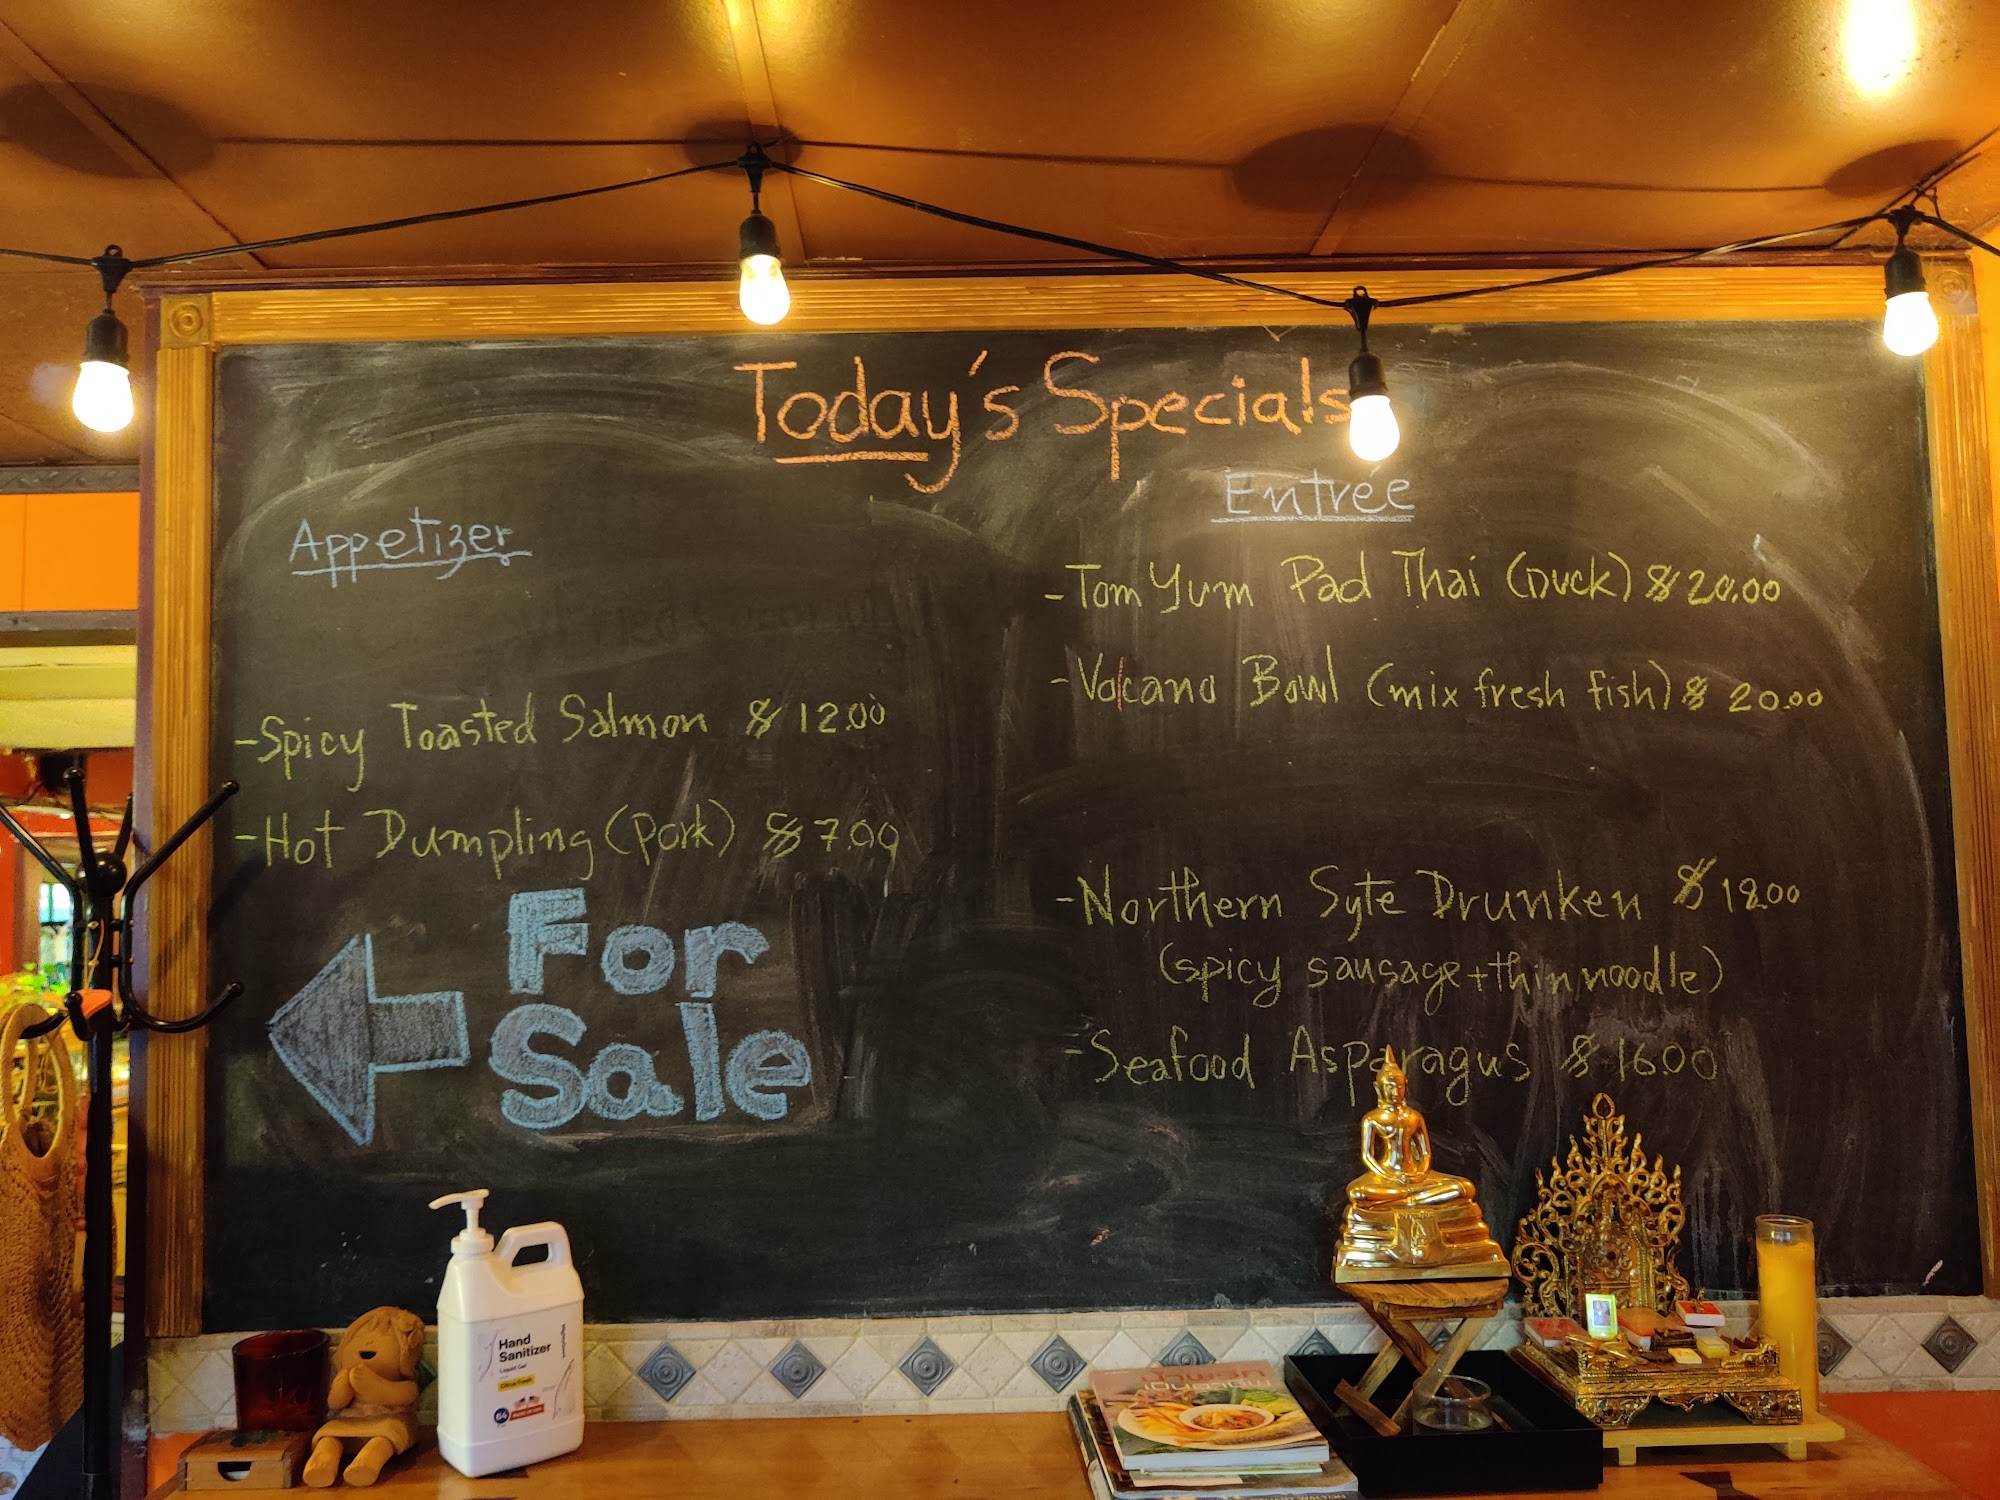 Today's Specials
Appetizer
-Spicy Toasted Salmon $12.00
-Hot Dumpling (Pork) $7.00
For
Sale
Entrée
-Tom Yum Pad Thai (Duck) $20.00
-Volcano Bowl (mix fresh fish) $20.00
-Northern Syte Drunken $18.00
(spicy sausage+thin noodle)
-Seafood Asparagus $16.00
Hand
Sanitizer
Liquid Gel
Citrus Fresh
64